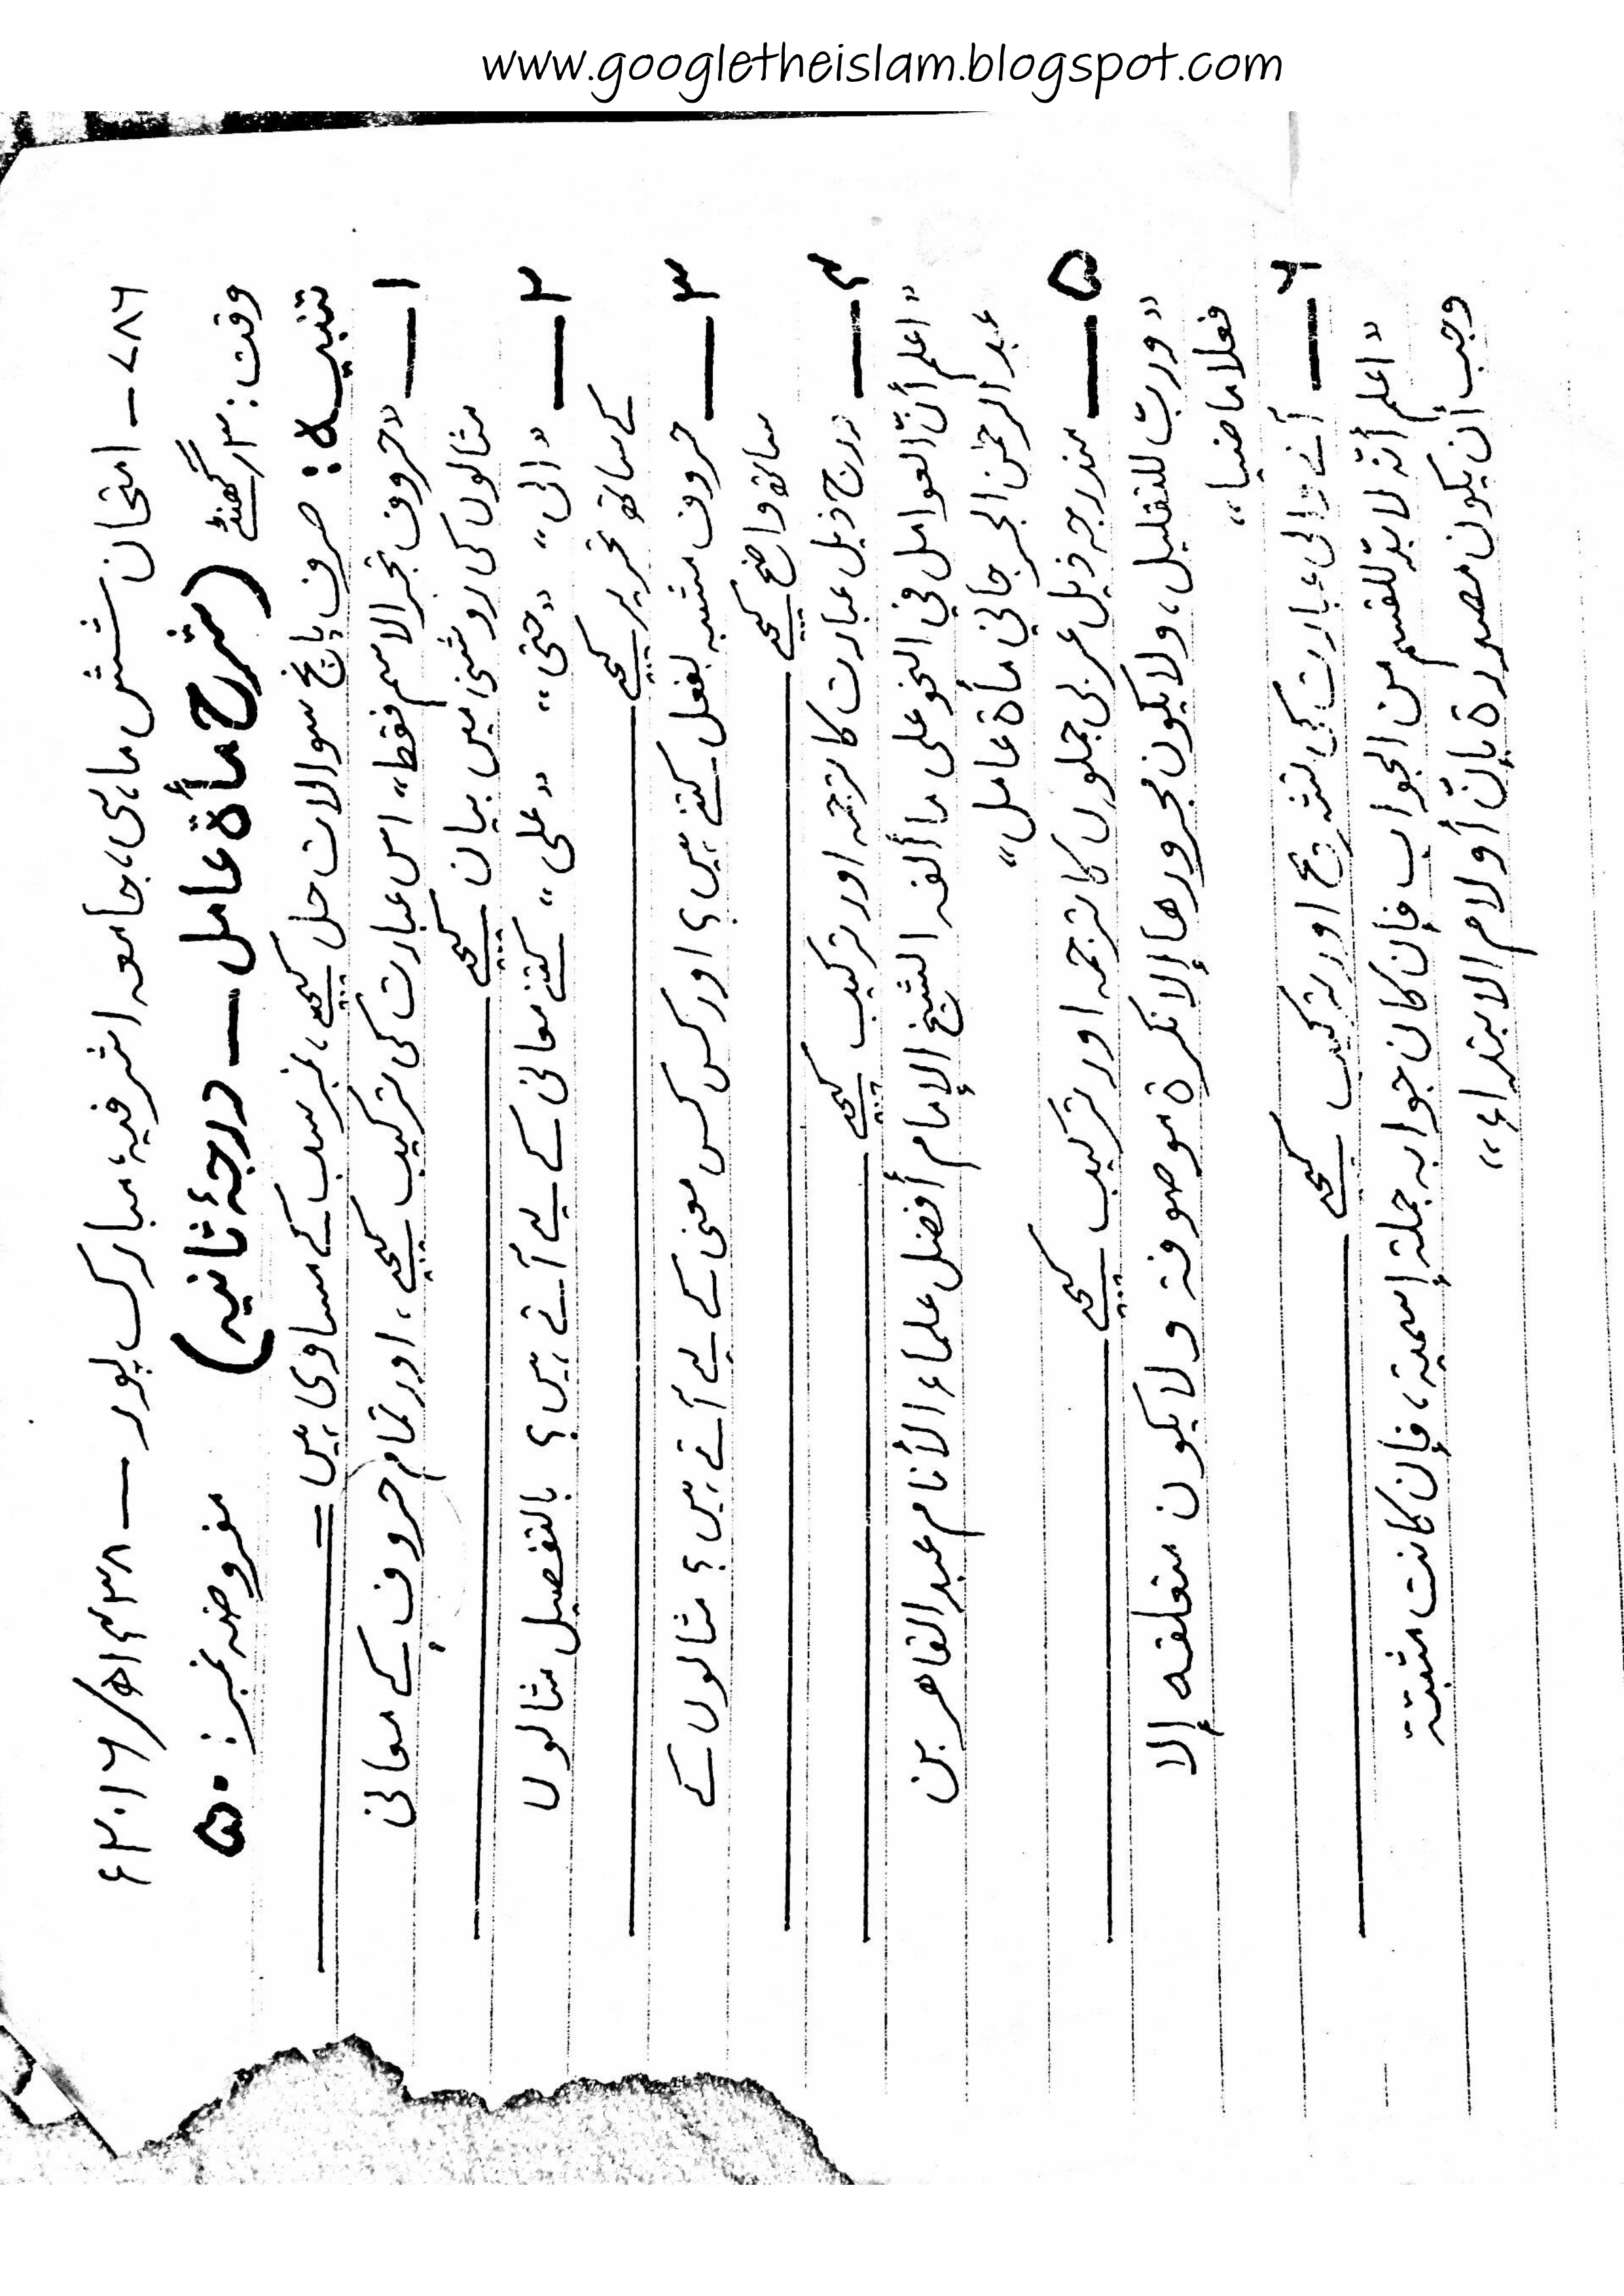 www.googletheislam.blogspot.com
۷۸۶ – امتحان شش ماہی، جامعہ اشرفیہ، مبارک پور — ۱۴۳۸ھ/۲۰۱۶ء
وقت: ۳ر گھنٹے (شرح مأۃ عامل — درجۂ ثانیہ) مفروضہ نمبر: ۵۰
تنبیہ: صرف پانچ سوالات حل کیجیے، نمبر سب کے مساوی ہیں
۱— "حروف تجر الاسم فقط" اس عبارت کی ترکیب کیجیے، اور تمام حروف کے معانی
مثالوں کی روشنی میں بیان کیجیے
۲— "الی" "حتی" "علی" کتنے معانی کے لیے آتے ہیں؟ بالتفصیل مثالوں
کے ساتھ تحریر کیجیے
۳— حروف مشبہ بفعل کتنے ہیں؟ اور کس کس معنی کے لیے آتے ہیں؟ مثالوں کے
ساتھ واضح کیجیے
۴— درج ذیل عبارت کا ترجمہ اور ترکیب کیجیے
"اعلم أنّ العوامل في النحو على ما ألفه الشيخ الإمام أفضل علماء الأنام عبد القاهر بن
عبد الرحمٰن الجرجاني مأة عامل"
۵— مندرجہ ذیل عربی جملوں کا ترجمہ اور ترکیب کیجیے
"ورب للتقليل، ولا يكون مجرورها إلا نكرة موصوفة ولا يكون متعلقه إلا
فعلا ماضيا"
۶— آنے والی عبارت کی تشریح اور ترکیب کیجیے
"اعلم أنّه لا بدّ للقسم من الجواب فإن كان جوابه جملة إسمية، فإن كانت مثبتة
وجب أن يكون مصدرة بإنّ أو لام الابتداء"